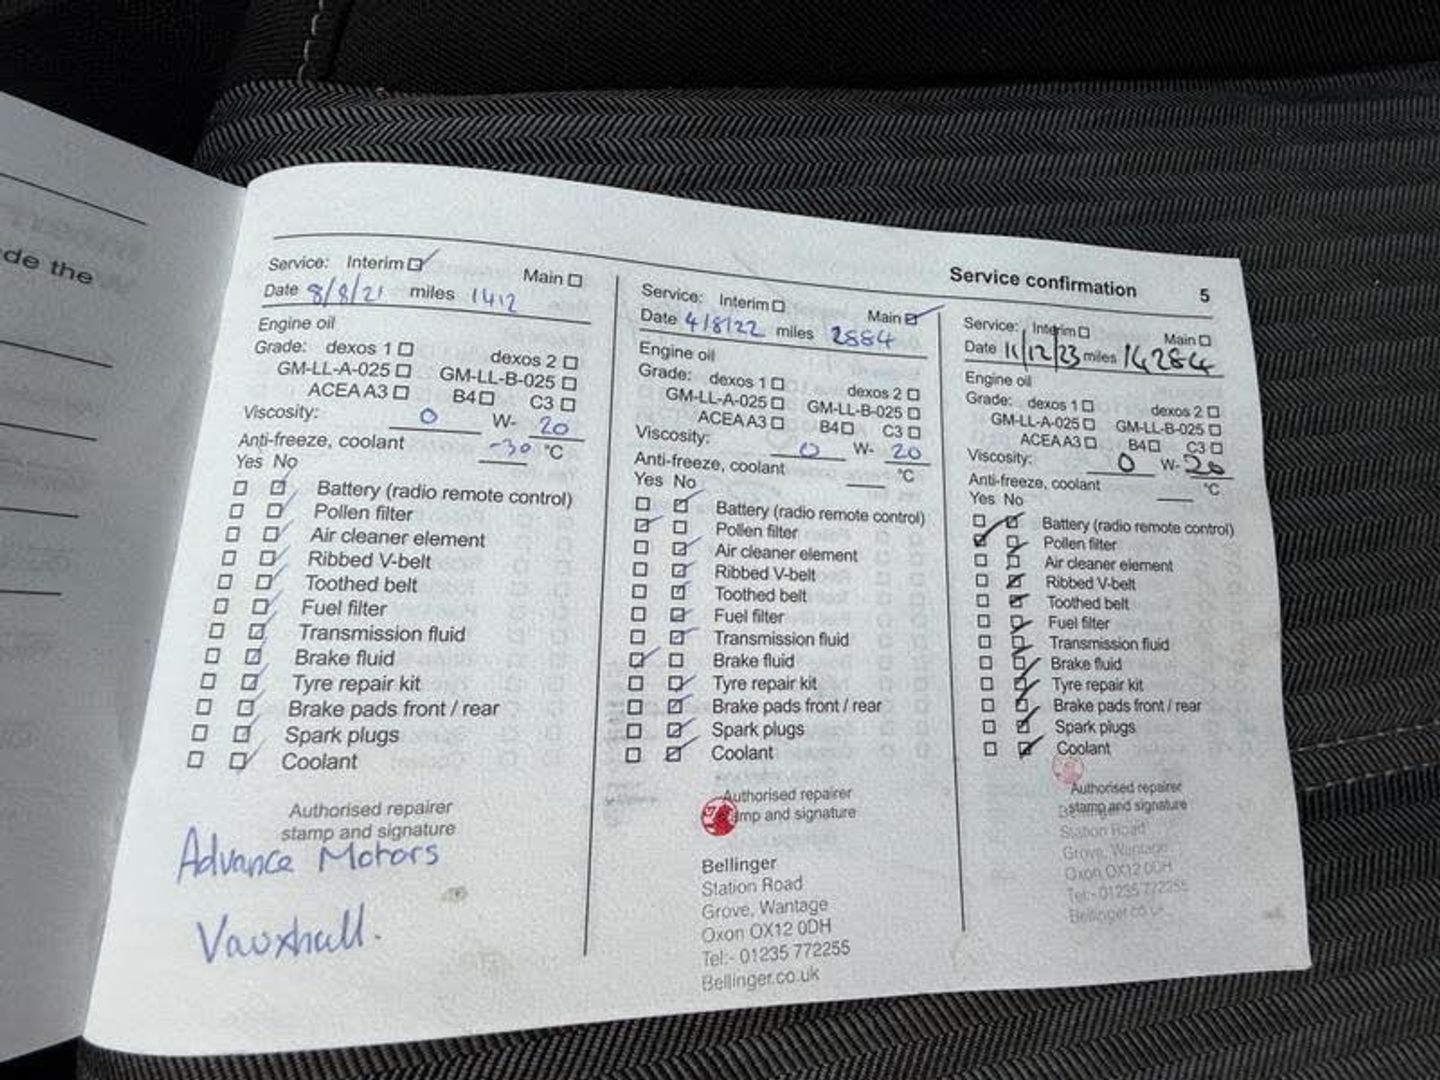 de the
Service confirmation 5
Service: Interim Main
Date 8/8/21 miles 1412
Engine oil
Grade: dexos 1 dexos 2
GM-LL-A-025 GM-LL-B-025
ACEA A3 B4 C3
Viscosity: 0 W- 20
Anti-freeze, coolant -30 °C
Yes No
Battery (radio remote control)
Pollen filter
Air cleaner element
Ribbed V-belt
Toothed belt
Fuel filter
Transmission fluid
Brake fluid
Tyre repair kit
Brake pads front / rear
Spark plugs
Coolant
Authorised repairer
stamp and signature
Advance Motors
Vauxhall.
Service: Interim Main
Date 4/8/22 miles 2884
Engine oil
Grade: dexos 1 dexos 2
GM-LL-A-025 GM-LL-B-025
ACEA A3 B4 C3
Viscosity: 0 W- 20
Anti-freeze, coolant °C
Yes No
Battery (radio remote control)
Pollen filter
Air cleaner element
Ribbed V-belt
Toothed belt
Fuel filter
Transmission fluid
Brake fluid
Tyre repair kit
Brake pads front / rear
Spark plugs
Coolant
Authorised repairer
stamp and signature
Bellinger
Station Road
Grove, Wantage
Oxon OX12 0DH
Tel:- 01235 772255
Bellinger.co.uk
Service: Interim Main
Date 11/12/23 miles 14284
Engine oil
Grade: dexos 1 dexos 2
GM-LL-A-025 GM-LL-B-025
ACEA A3 B4 C3
Viscosity: 0 W- 20
Anti-freeze, coolant °C
Yes No
Battery (radio remote control)
Pollen filter
Air cleaner element
Ribbed V-belt
Toothed belt
Fuel filter
Transmission fluid
Brake fluid
Tyre repair kit
Brake pads front / rear
Spark plugs
Coolant
Authorised repairer
stamp and signature
Bellinger
Station Road
Grove, Wantage
Oxon OX12 0DH
Tel:- 01235 772255
Bellinger.co.uk